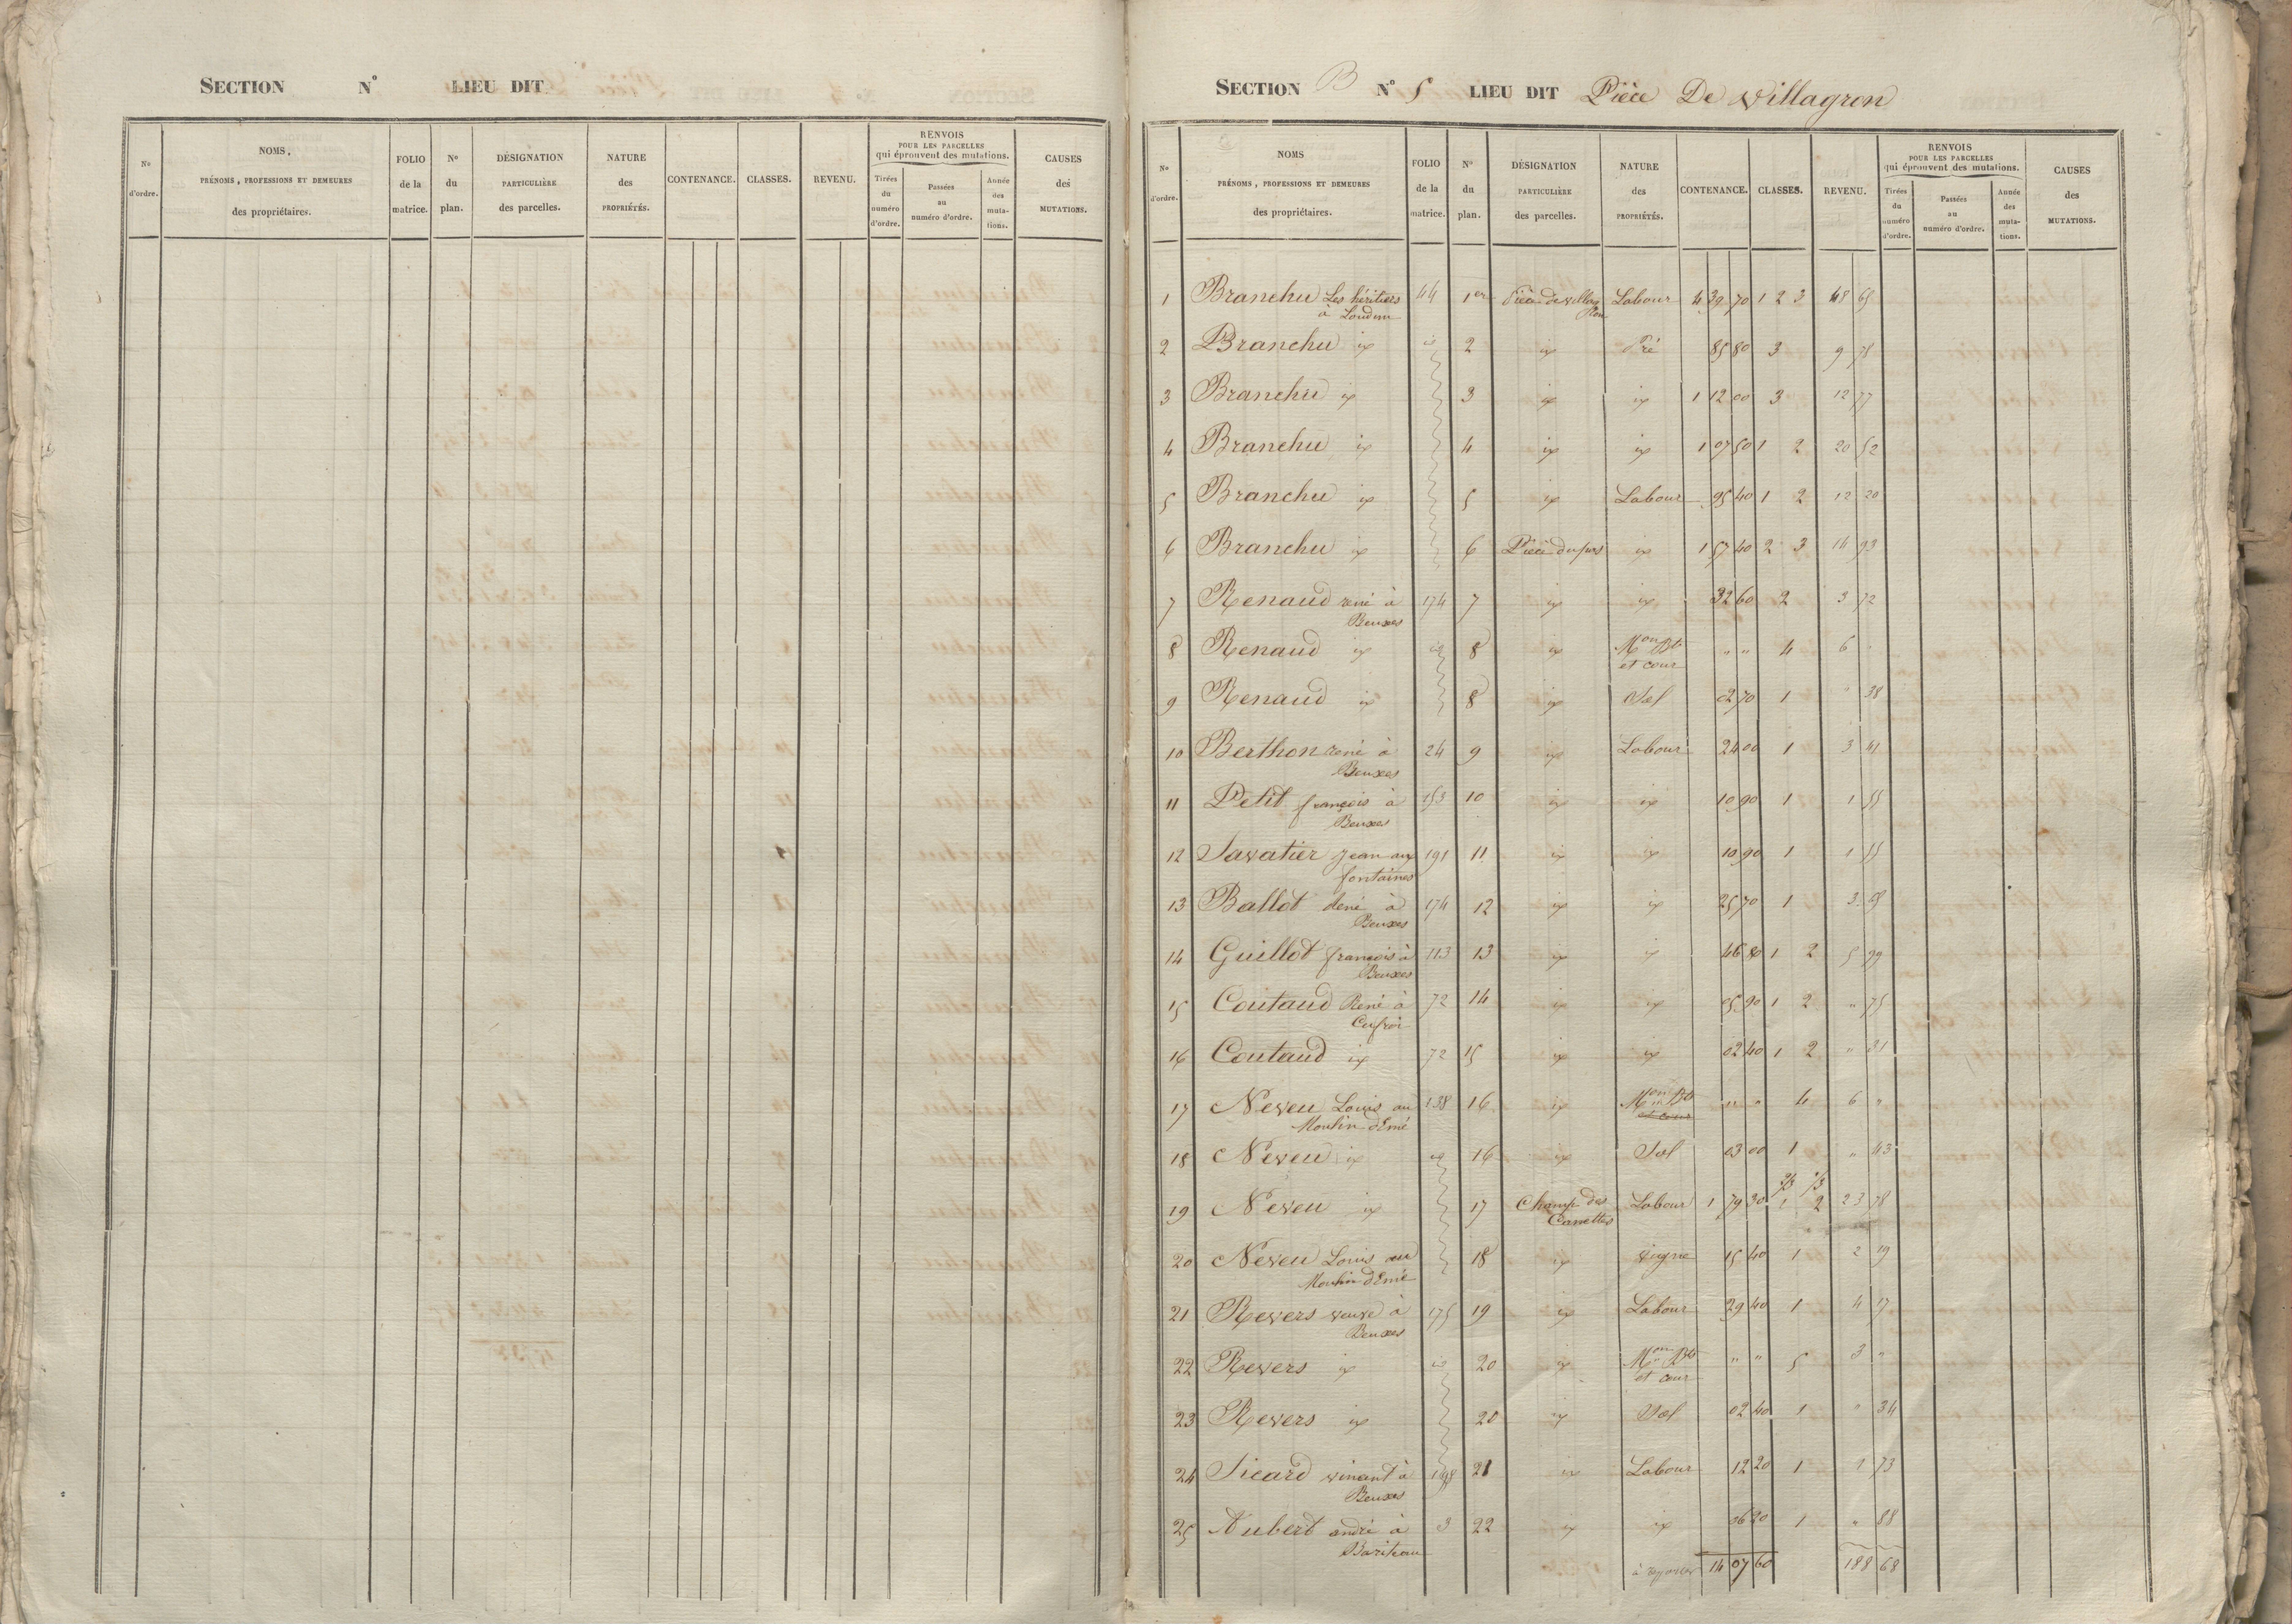 SECTION N° LIEU DIT
N° d'ordre.
NOMS, PRÉNOMS, PROFESSIONS ET DEMEURES des propriétaires.
FOLIO de la matrice.
N° du plan.
DÉSIGNATION PARTICULIÈRE des parcelles.
NATURE des PROPRIÉTÉS.
CONTENANCE.
CLASSES.
REVENU.
RENVOIS POUR LES PARCELLES qui éprouvent des mutations.
Tirées du numéro d'ordre.
Passées au numéro d'ordre.
Année des mutations.
CAUSES des MUTATIONS.
SECTION B N° 5 LIEU DIT Pièce De Villagron
N° d'ordre.
NOMS PRÉNOMS, PROFESSIONS ET DEMEURES des propriétaires.
FOLIO de la matrice.
N° du plan.
DÉSIGNATION PARTICULIÈRE des parcelles.
NATURE des PROPRIÉTÉS.
CONTENANCE.
CLASSES.
REVENU.
RENVOIS POUR LES PARCELLES qui éprouvent des mutations.
Tirées du numéro d'ordre.
Passées au numéro d'ordre.
Année des mutations.
CAUSES des MUTATIONS.
1 Branchu Les héritiers 44 1er Labour 4 39 70 1 2 3 48 65
à Loudun
2 Branchu ix 2 ix Pré 85 80 3 9 78
3 Branchu ix 3 ix ix 1 12 00 3 12 77
4 Branchu ix 4 ix ix 1 07 50 1 2 20 52
5 Branchu ix 5 ix Labour 95 40 1 2 12 20
6 Branchu ix 6 ix 1 57 40 2 3 14 93
7 Renaud rené à 174 7 ix ix 32 60 2 3 72
Beuxes
8 Renaud ix 8 ix Mon Bt " " 4 6 "
et cour
9 Renaud ix 8 ix Sol 02 70 1 " 38
10 Berthon rené à 24 9 ix Labour 24 00 1 3 41
Beuxes
11 Petit françois à 153 10 ix ix 10 90 1 1 55
Beuxes
12 Savatier Jean aux 191 11 ix ix 10 90 1 1 55
fontaines
13 Ballot René à 174 12 ix ix 25 70 1 3 65
Beuxes
14 Guillot françois à 113 13 ix ix 46 80 1 2 5 99
Beuxes
15 Coutaud René à 72 14 ix ix 05 90 1 2 " 75
16 Coutaud ix 72 15 ix ix 02 40 1 2 " 31
17 Neveu Louis au 138 16 ix Mon Bt " " 4 6 "
Moulin d'Emé et cour
18 Neveu ix 16 ix Sol 03 00 1 " 43
19 Neveu ix 17 Champ des Labour 1 79 30 1 2 23 78
Canettes
20 Neveu Louis au 18 ix vigne 15 40 1 2 19
Moulin d'Emé
21 Revers veuve à 175 19 ix Labour 29 40 1 4 17
Beuxes
22 Revers ix 20 ix Mon Bt " " 5 3 "
et cour
23 Revers ix 20 ix Sol 02 40 1 " 34
24 Sicard vincent à 198 21 ix Labour 12 20 1 1 73
Beuxes
25 Aubert andré à 3 22 ix ix 06 20 1 " 88
Bariteau
à reporter 14 07 60 188 68